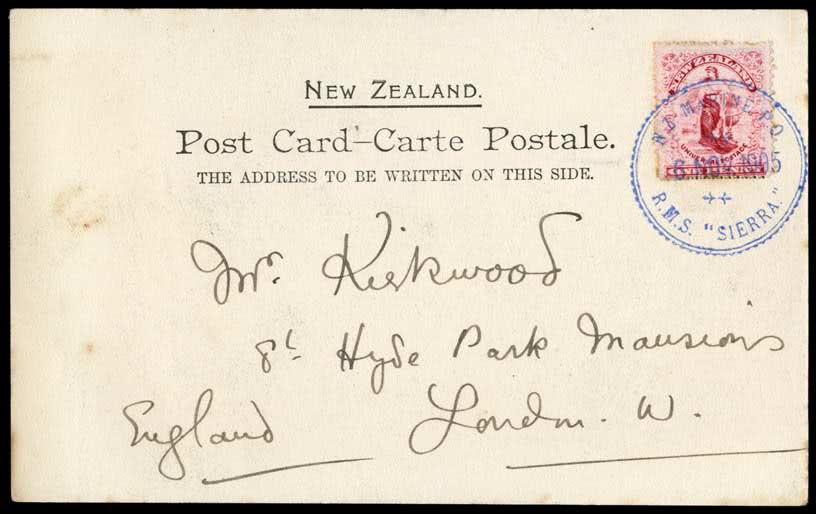 NEW ZEALAND.
Post Card–Carte Postale.
THE ADDRESS TO BE WRITTEN ON THIS SIDE.
NEW ZEALAND
UNIVERSAL POSTAGE
N.Z. MARINE P.O.
6 NOV 1905
R.M.S. "SIERRA."
Mr. Kirkwood
Hyde Park Mansions
London. W.
England